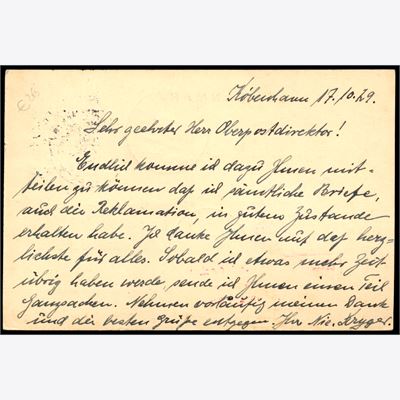 København 17.10.29.
Sehr geehrter Herr Oberpostdirektor!
Endlich komme ich dazu Ihnen mit-
teilen zu können daß ich sämtliche Briefe,
auch die Reklamation, in gutem Zustande
erhalten habe. Ich danke Ihnen auf das herz-
lichste für alles. Sobald ich etwas mehr Zeit
übrig haben werde, sende ich Ihnen einen Teil
Ganzsachen. Nehmen vorläufig meinen Dank
und die besten Grüße entgegen Ihr Nic. Kryger.